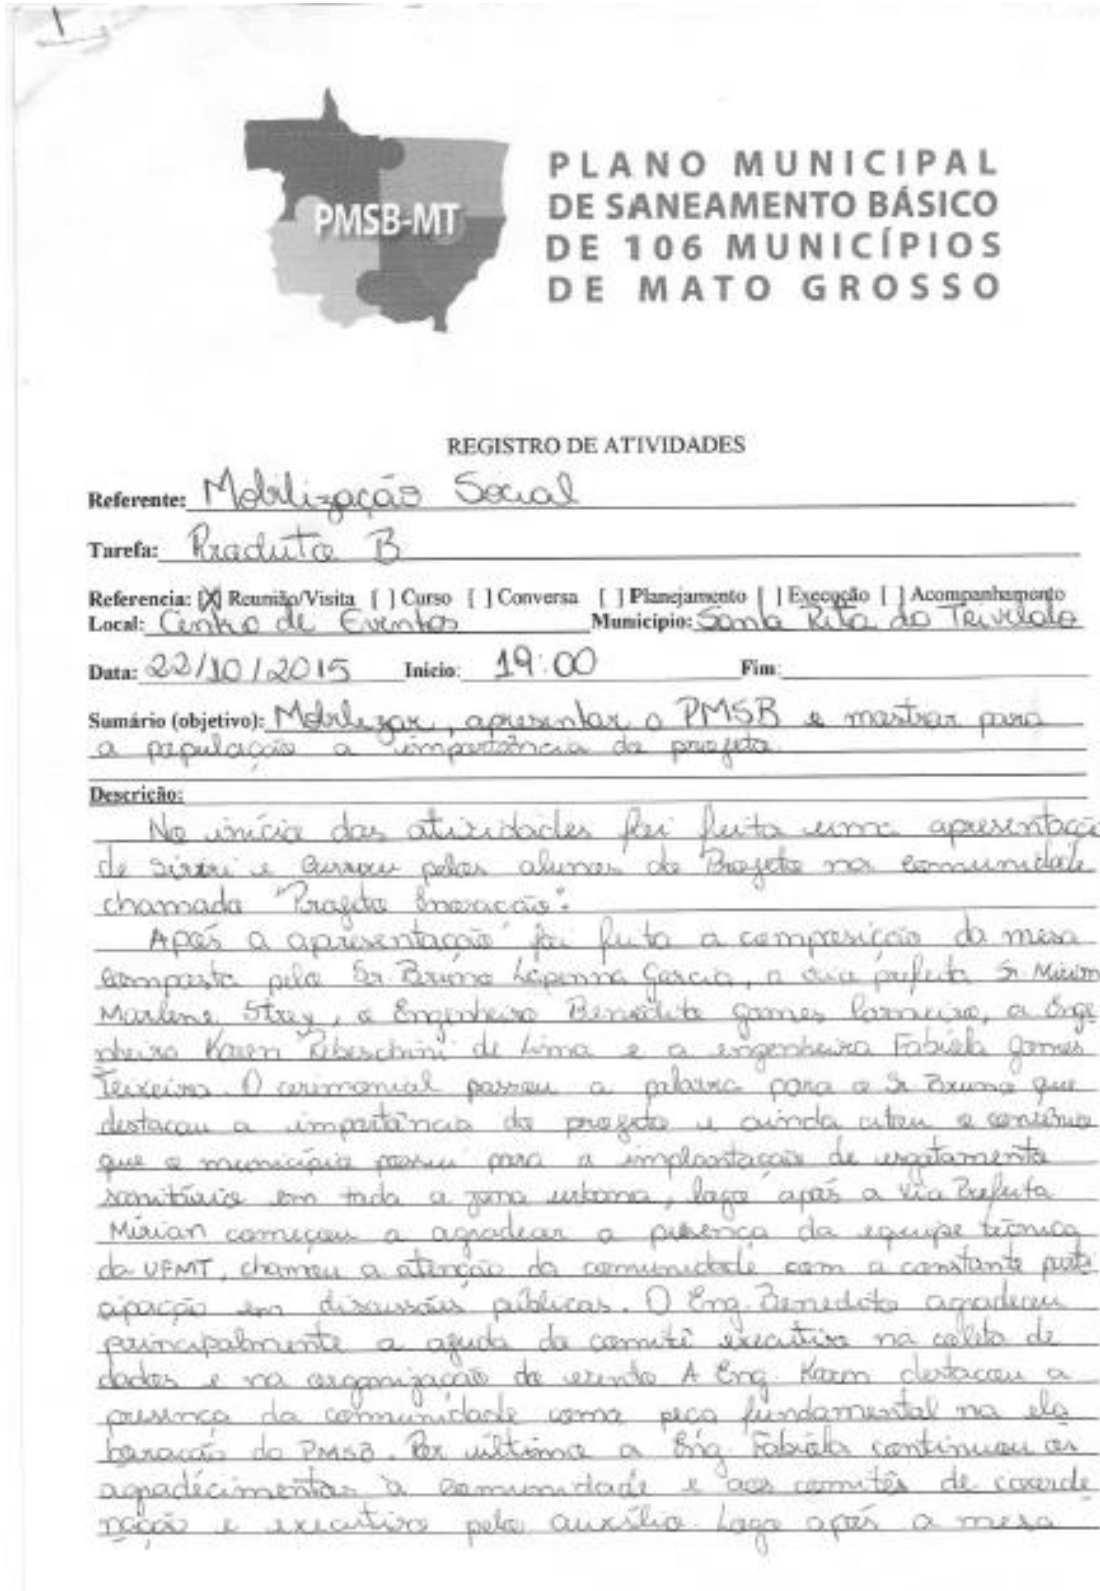 1
PMSB-MT
PLANO MUNICIPAL
DE SANEAMENTO BÁSICO
DE 106 MUNICÍPIOS
DE MATO GROSSO
REGISTRO DE ATIVIDADES
Referente: Mobilização Social
Tarefa: Produto B
Referencia: [X] Reunião/Visita [ ] Curso [ ] Conversa [ ] Planejamento [ ] Execução [ ] Acompanhamento
Local: Centro de Eventos Município: Santa Rita do Trivelato
Data: 22/10/2015 Inicio: 19:00 Fim:
Sumário (objetivo): Mobilizar, apresentar o PMSB e mostrar para
a população a importância do projeto
Descrição:
No início das atividades foi feita uma apresentaçã
de Siriri e Cururu pelos alunos do Projeto na comunidade
chamado "Projeto Inovação".
Após a apresentação foi feita a composição da mesa
composta pelo Sr. Bruno Lapenna Garcia, a vice prefeita Sr. Mirian
Marlene Strey, o Engenheiro Benedito Gomes Carneiro, a Enge
nheira Karen Rebeschini de Lima e a engenheira Fabíola Gomes
Teixeira. O cerimonial passou a palavra para o Sr. Bruno que
destacou a importância do projeto e ainda citou o convênio
que o município possui para a implantação de esgotamento
sanitário em toda a zona urbana, logo após a Vice Prefeita
Mirian começou a agradecer a presença da equipe técnica
da UFMT, chamou a atenção da comunidade com a constante parti
cipação em discussões públicas. O Eng. Benedito agradeceu
principalmente a ajuda do comitê executivo na coleta de
dados e na organização do evento A Eng. Karen destacou a
presença da comunidade como peça fundamental na ela
boração do PMSB. Por último a Eng. Fabíola continuou os
agradecimentos à comunidade e aos comitês de coorde
nação e executivo pelo auxílio. Logo após a mesa